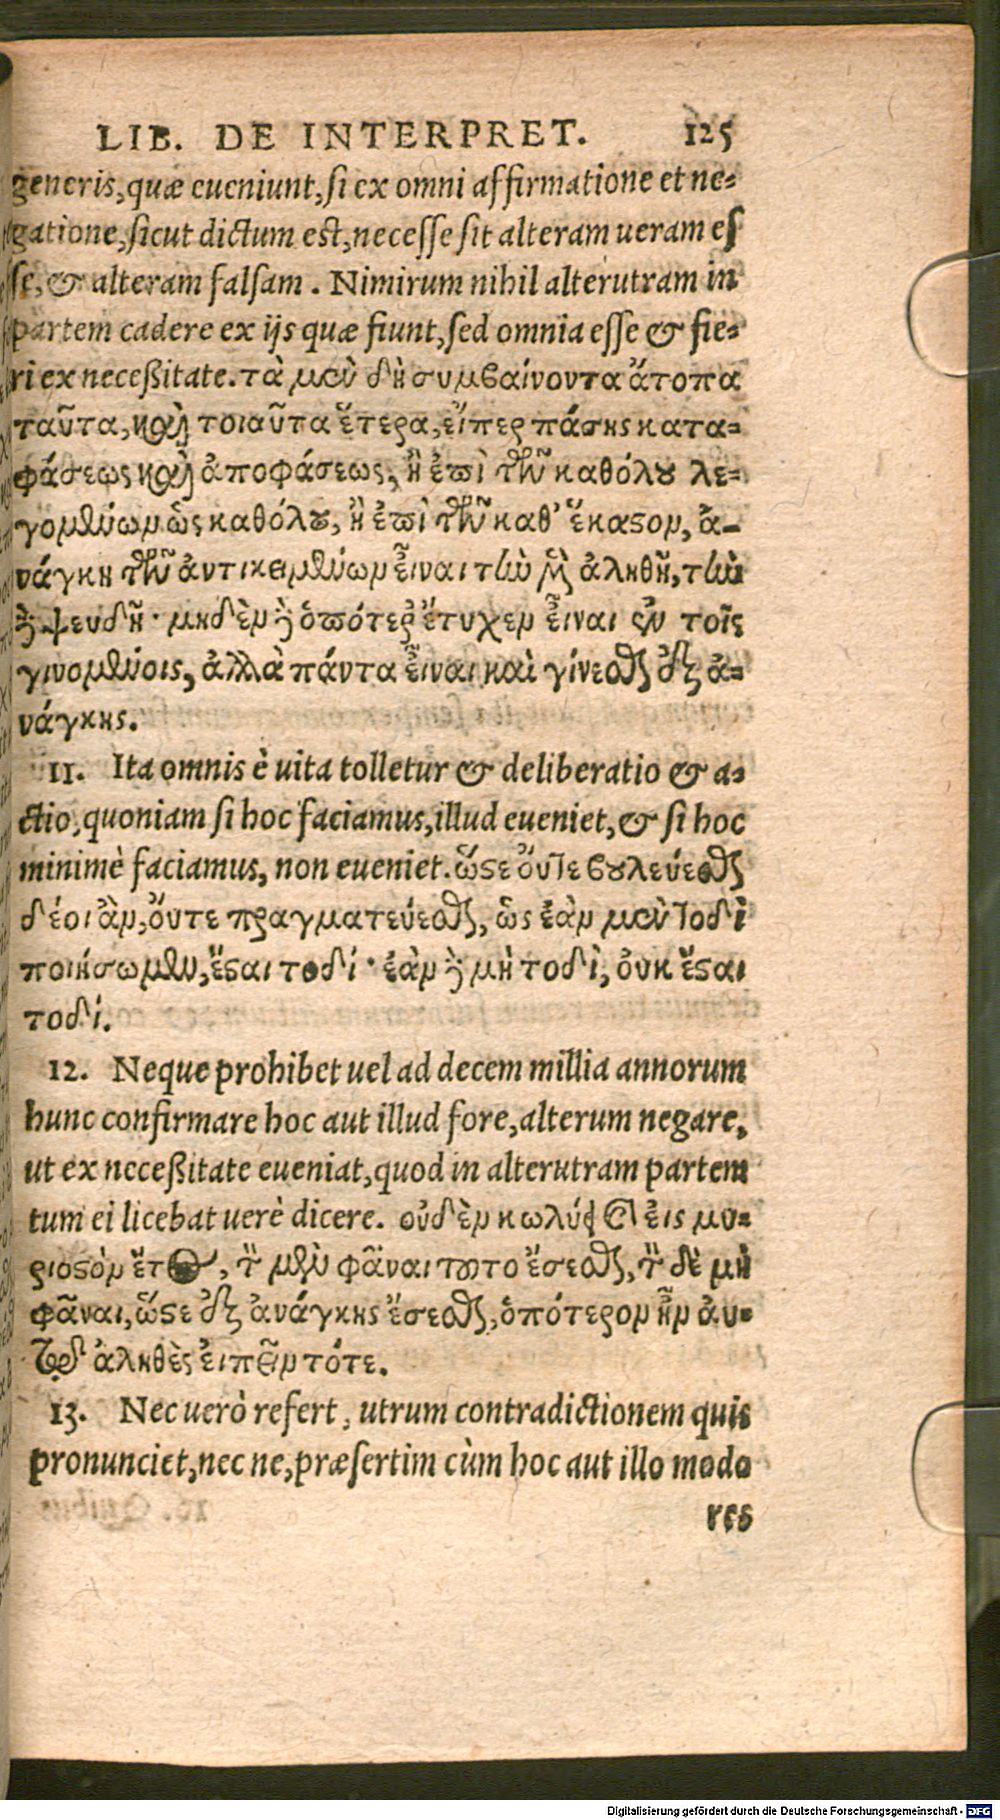 LIB. DE INTERPRET. 125
generis, quæ eueniunt, si ex omni affirmatione et ne-
gatione, sicut dictum est, necesse sit alteram ueram es
se, & alteram falsam. Nimirum nihil alterutram in
partem cadere ex ijs quæ fiunt, sed omnia esse & fie-
ri ex neceßitate. τὰ μὲν δὴ συμβαίνοντα ἄτοπα
ταῦτα, καὶ τοιαῦτα ἕτερα, εἴπερ πάσης κατα-
φάσεως καὶ ἀποφάσεως, ἢ ἐπὶ τῶν καθόλου λε-
γομένων ὡς καθόλου, ἢ ἐπὶ τῶν καθ' ἕκαστον, ἀ-
νάγκη τῶν ἀντικειμένων εἶναι τὴν μὲν ἀληθῆ, τὴν
δὲ ψευδῆ· μηδὲν δὲ ὁπότερ' ἔτυχεν εἶναι ἐν τοῖς
γινομένοις, ἀλλὰ πάντα εἶναι καὶ γίνεσθαι ἐξ ἀ-
νάγκης.
11. Ita omnis è uita tolletur & deliberatio & a-
ctio, quoniam si hoc faciamus, illud eueniet, & si hoc
minimè faciamus, non eueniet. ὥστε οὔτε βουλεύεσθαι
δέοι ἂν, οὔτε πραγματεύεσθαι, ὡς ἐὰν μὲν τοδὶ
ποιήσωμεν, ἔσται τοδί· ἐὰν δὲ μὴ τοδὶ, οὐκ ἔσται
τοδί.
12. Neque prohibet uel ad decem millia annorum
hunc confirmare hoc aut illud fore, alterum negare,
ut ex neceßitate eueniat, quod in alterutram partem
tum ei licebat uerè dicere. οὐδὲν κωλύει εἰς μυ-
ριοστὸν ἔτος, τὸν μὲν φᾶναι τοῦτο ἔσεσθαι, τὸν δὲ μὴ
φᾶναι, ὥστε ἐξ ἀνάγκης ἔσεσθαι, ὁπότερον ἦν αὐ-
τῶν ἀληθὲς εἰπεῖν τότε.
13. Nec uerò refert, utrum contradictionem quis
pronunciet, nec ne, præsertim cùm hoc aut illo modo
res
Digitalisierung gefördert durch die Deutsche Forschungsgemeinschaft - DFG